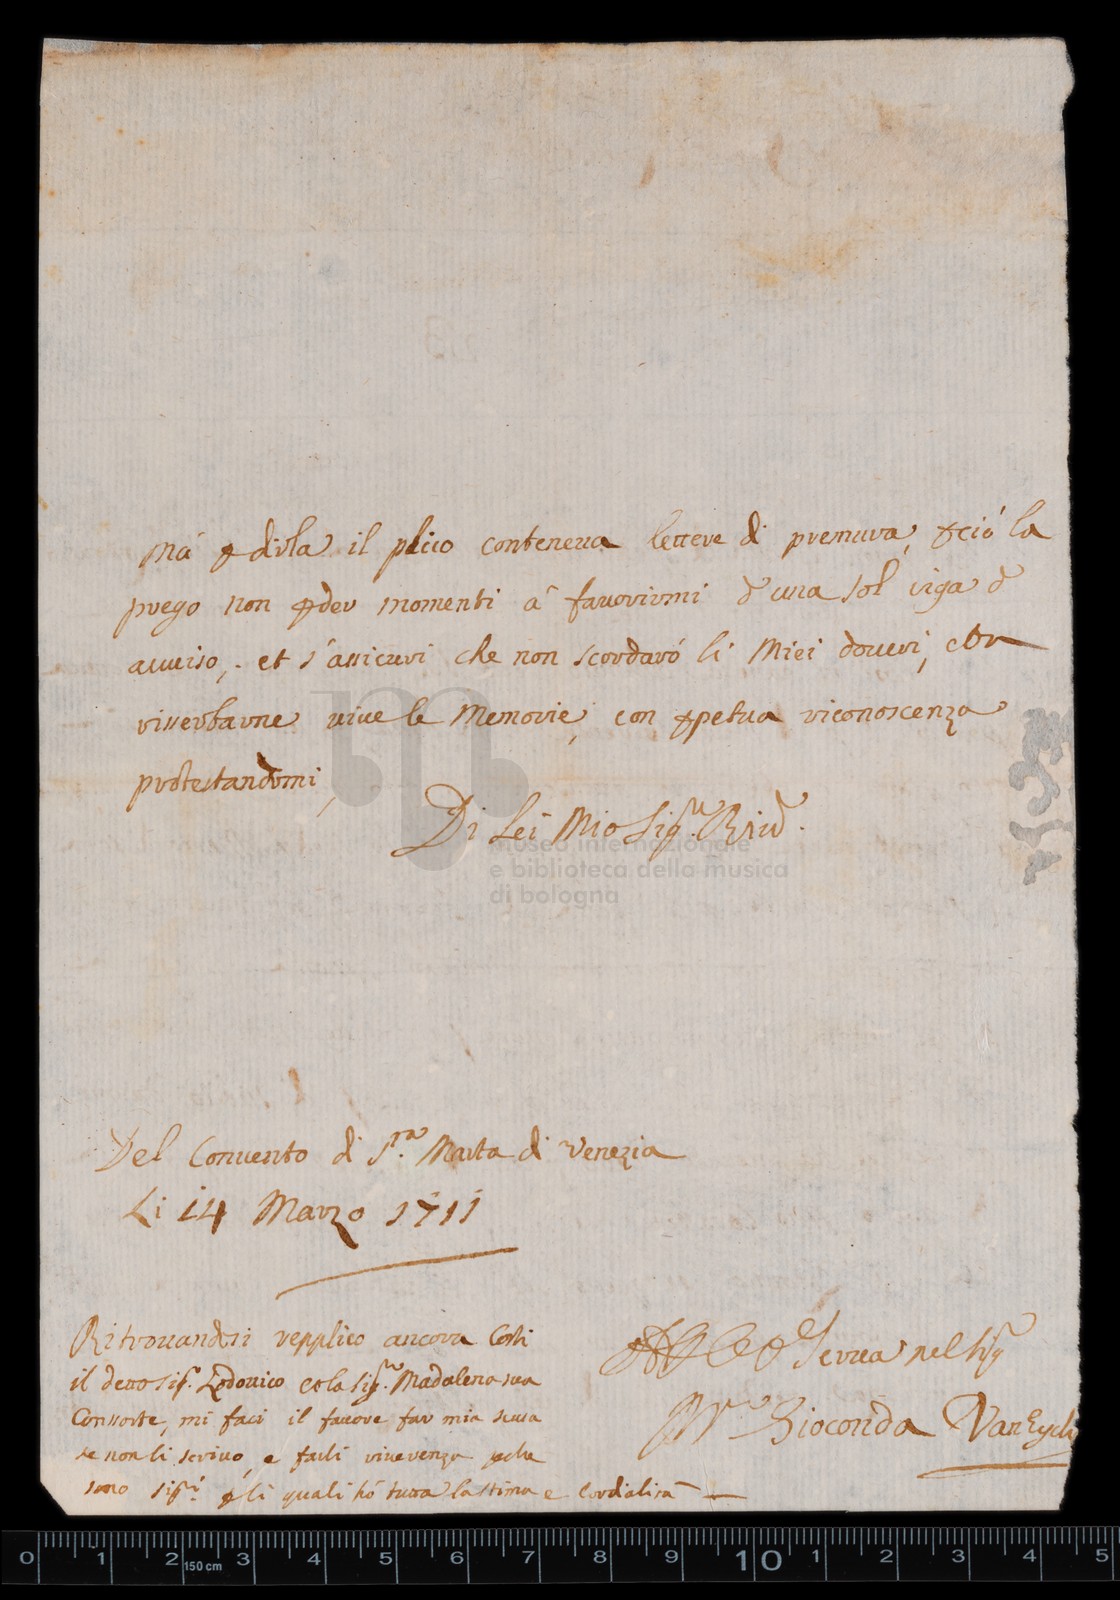 Mà p dirla il plico conteneua lettere di premura, p ciò la
prego non pder momenti à fauorirmi d una sol riga d
auuiso, et s'assicuri che non scordarò li Miei doueri, et
risserbarne uiue le Memorie, con ppetua riconoscenza
protestandomi,
Di Lei Mio Sig.re Riu.do
museo internazionale
e biblioteca della musica
di bologna
Del Conuento di S.ta Marta di Venezia
Li 14 Marzo 1711
Ritrouandosi repplico ancora Costi
il detto Sig.r Lodouico e la Sig.ra Madalena sua
Consorte, mi faci il fauore far mia scusa
se non li scriuo, e farli riuerenza pche
sono Sig.ri p li quali hò tutta la stima e Cordialità
Serua nel Sig.re
Gioconda VanEyck
0 1 2 3 4 5 6 7 8 9 10 1 2 3 4 5
150 cm